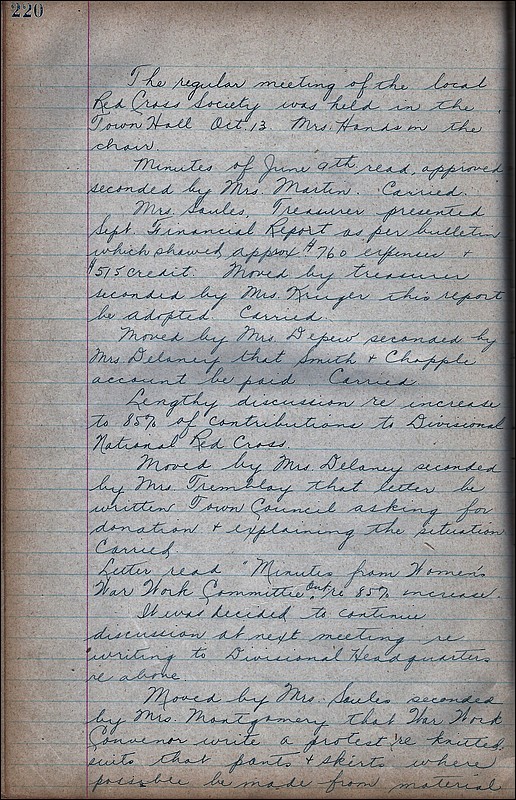 220
The regular meeting of the local
Red Cross Society was held in the
Town Hall Oct. 13. Mrs. Hands in the
chair.
Minutes of June 9th read, approved
seconded by Mrs. Martin. Carried.
Mrs. Saules, Treasurer presented
Sept. Financial Report as per bulletin
which showed approx $760 expenses +
$515 credit. Moved by treasurer
seconded by Mrs. Kruger this report
be adopted. Carried.
Moved by Mrs. Depew seconded by
Mrs Delaney that Smith + Chapple
account be paid Carried
Lengthy discussion re increase
to 85% of contributions to Divisional
National Red Cross.
Moved by Mrs. Delaney seconded
by Mrs Tremblay that letter be
written Town Council asking for
donation + explaining the situation
Carried
Letter read "Minutes from Women's
War Work Committee Ont. re 85% increase.
It was decided to continue
discussion at next meeting re
writing to Divisional Headquarters
re above.
Moved by Mrs. Saules seconded
by Mrs. Montgomery that War Work
Convenor write a protest re knitted
suits that pants + skirts where
possible be made from material